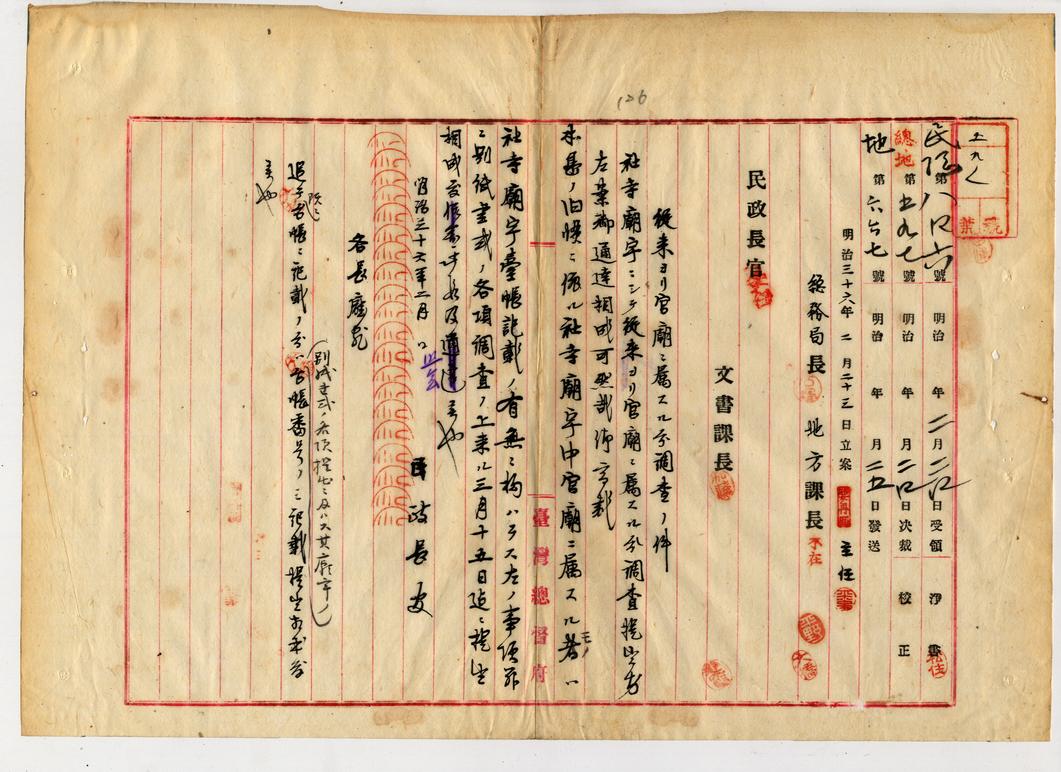 126
五九七
號
葉
民總第八〇六號 明治 年 二月二〇日受領 淨書
總地第五九七號 明治 年 月二〇日決裁 校正
地第六六七號 明治 年 月二五日發送
明治三十六年二月二十三日立案 主任
總務局長 地方課長 不在
民政長官
文書課長
從来ヨリ官廟ニ属スル分調査ノ件
社寺廟宇ニシテ從来ヨリ官廟ニ属スル分調査提出方
左案御通達相成可然哉仰高裁
本島ノ旧慣ニ依ル社寺廟宇中官廟ニ属スルモノハ
社寺廟宇臺帳記載ノ有無ニ拘ハラス左ノ事項
別紙書式ノ各項調査ノ上来ル三月十五日迄ニ提出
相成度
明治三十六年二月 日
民政長官
各長廳宛
追テ台帳ニ記載ノ分ハ台帳番号ノミ記載提出
別紙書式ノ各項
臺灣總督府